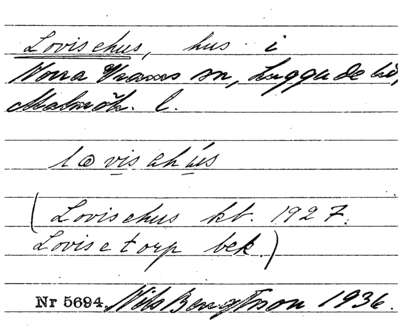 Lovisehus, hus i
Norra Vrams sn, Luggude hd,
Malmöh. l.
lovisəhùs
(Lovisehus kb. 1927.
Lovisetorp bek.)
Nr 5694. Nils Bengtsson 1936.